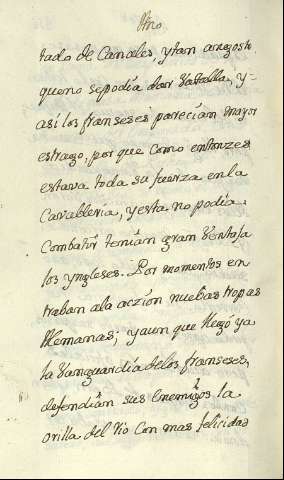 tado de Canales, y tan angosto
que no se podía dar Vatalla, y-
así los franseses parecían mayor
estrago, por que como entonzes
estava toda su fuerza en la
Cavallería, y esta no podía
Combatir tenían gran Ventaja
los yngleses. Por momentos en
traban a la aczión nuebas tropas
Alemanas; y aun que llegó ya
la Vanguardía de los franseses,
defendían sus Enemigos la
orilla del rio Con mas felicidad